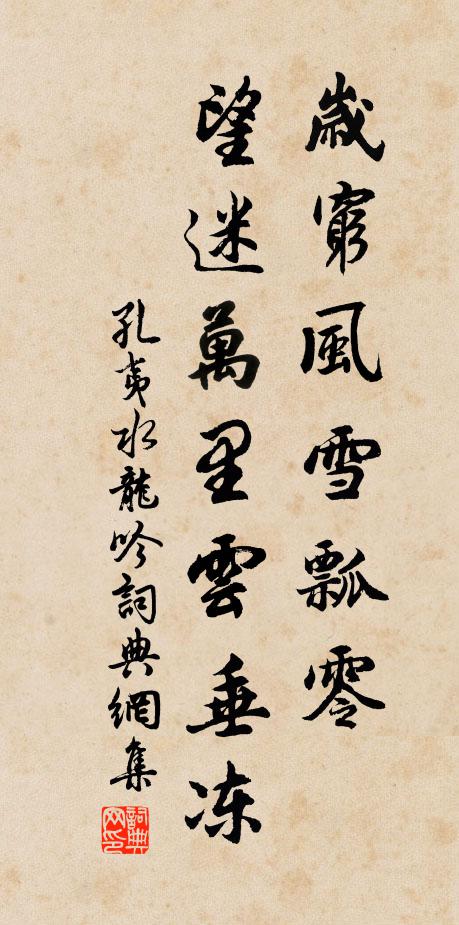 歲窮風雪瓢零
望迷萬里雲垂冻
孔夷水龍吟詞典網集
詞典网印